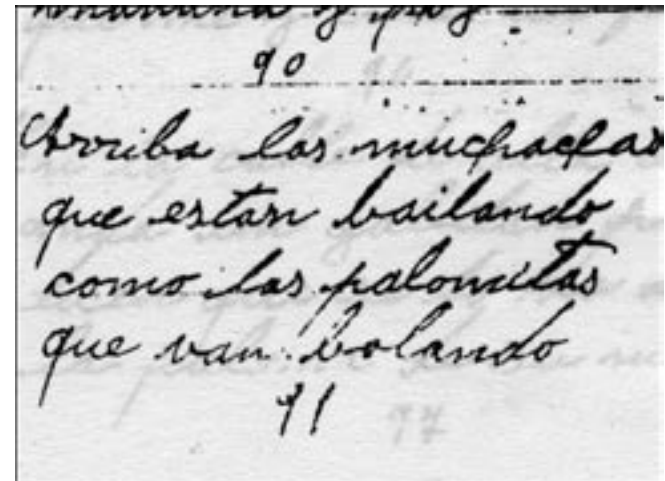 90
Arriba las muchachas
que estan bailando
como las palomitas
que van bolando
91
97